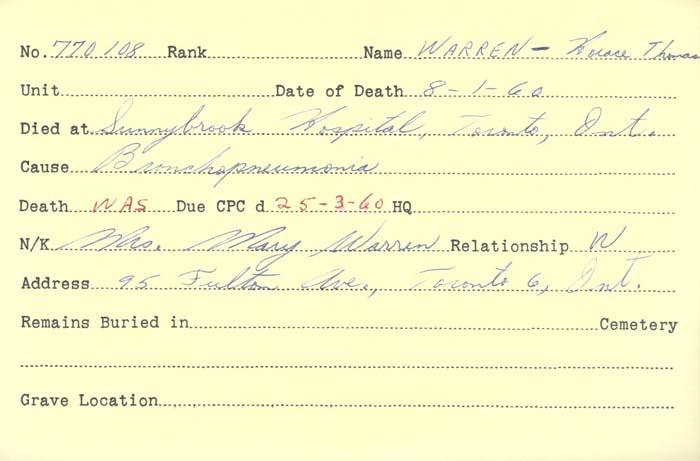 No. 770108 Rank Name WARREN - Horace Thomas
Unit Date of Death 8-1-60
Died at Sunnybrook Hospital, Toronto, Ont.
Cause Bronchopneumonia
Death WAS Due CPC d 25-3-60 HQ
N/K Mrs. Mary Warren Relationship W
Address 95 Fulton Ave., Toronto 6, Ont.
Remains Buried in Cemetery
Grave Location